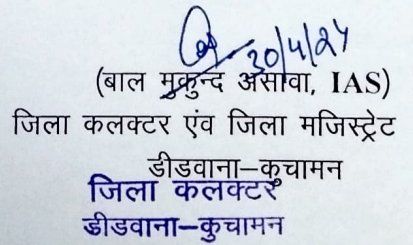 30/4/24
(बाल मुकुन्द असावा, IAS)
जिला कलक्टर एंव जिला मजिस्ट्रेट
डीडवाना–कुचामन
जिला कलक्टर
डीडवाना–कुचामन